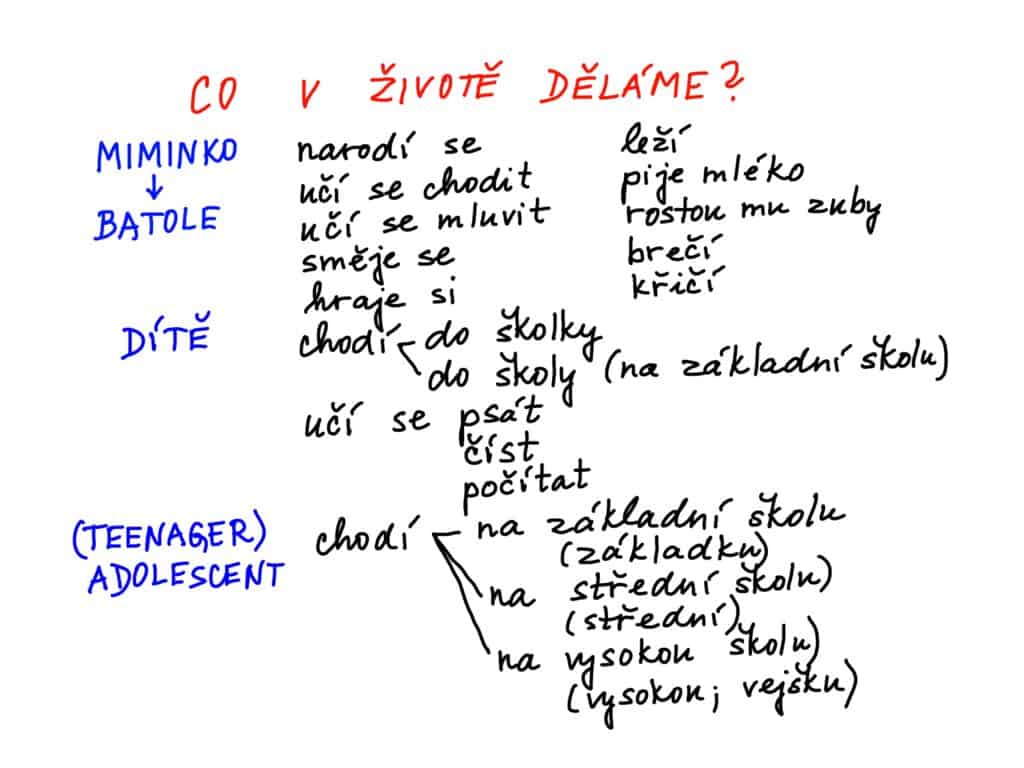 CO V ŽIVOTĚ DĚLÁME?
MIMINKO narodí se leží
učí se chodit pije mléko
BATOLE učí se mluvit rostou mu zuby
směje se brečí
hraje si křičí
DÍTĚ chodí do školky
do školy (na základní školu)
učí se psát
číst
počítat
(TEENAGER) chodí na základní školu
(základku)
ADOLESCENT na střední školu)
(střední)
na vysokou školu)
(vysokou; vejšku)